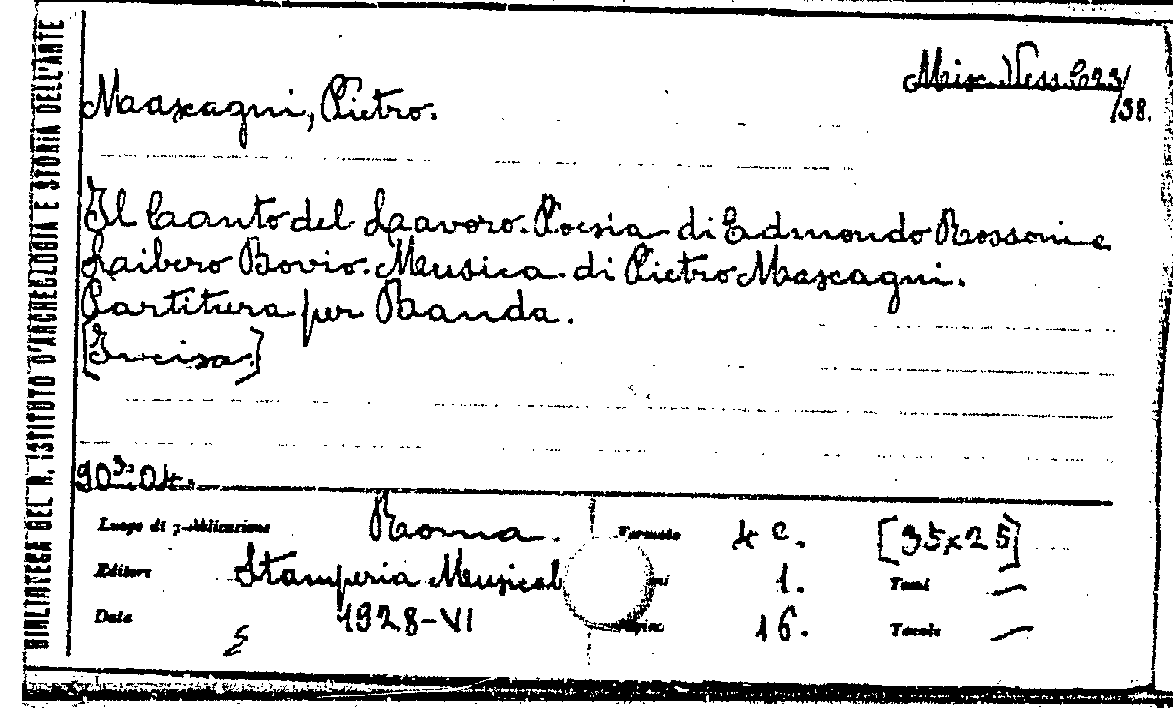 BIBLIOTECA DEL R. ISTITUTO D'ARCHEOLOGIA E STORIA DELL'ARTE
Misc. Vess. C23/
/38.
Mascagni, Pietro.
Il Canto del Lavoro. Poesia di Edmondo Rossoni e
Libero Bovio. Musica di Pietro Mascagni.
Partitura per Banda.
[Incisa.]
Luogo di pubblicazione Roma. Formato 4°. [35x25]
Editore Stamperia Musical 1. Tomi —
Data 1928-VI 16. Tavole —